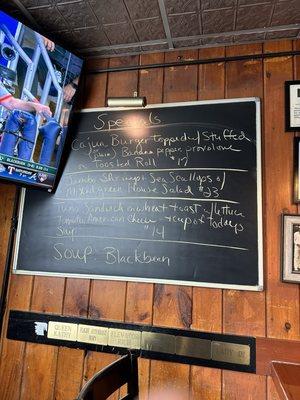 Specials
Cajun Burger topped w/ stuffed
(plain) Banana pepper, provolone
Toasted Roll $17
Jumbo Shrimp + Sea Scallops w/
Mixed green House Salad $33
Tuna Sandwich on wheat toast w/ lettuce
Tomato, American Cheese + cup of todays
Soup $14
Soup: Blackbean
QUEEN
KATHY